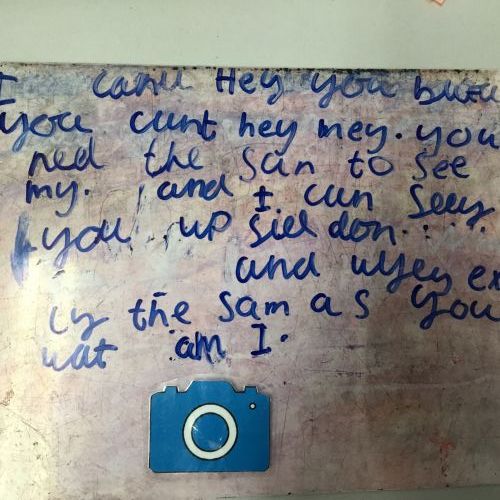 I canu Hey you butu
you cunt hey mey. you
ned the sun to see
my. and I cun seey
you up sied don....
and uyey ex
ly the sam as you
wat am I.